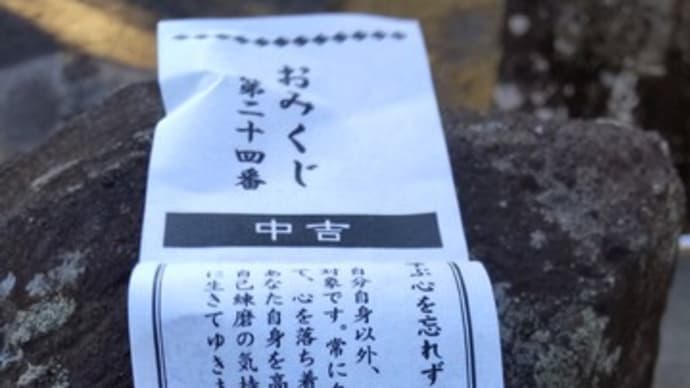 おみくじ
第二十四番
中吉
ぶ心を忘れず
自分自身以外、
対象です。常に
て、心を落ち着
あなた自身を高
自己練磨の気持
に生きてゆきま